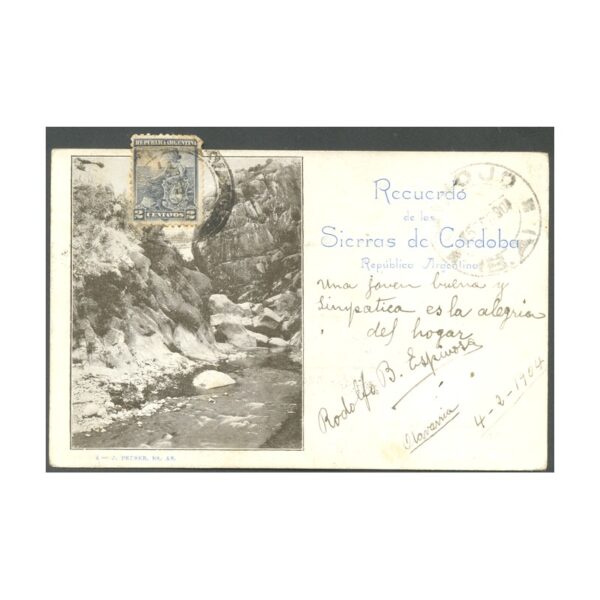 REPUBLICA ARGENTINA
2 CENTAVOS 2
Recuerdo
de las
Sierras de Cordoba
República Argentina
Una joven buena y
Simpatica es la alegria
del hogar
Rodolfo B. Espinosa
Olavarria
4-2-1904
4 — J. PEUSER, BS. AS.